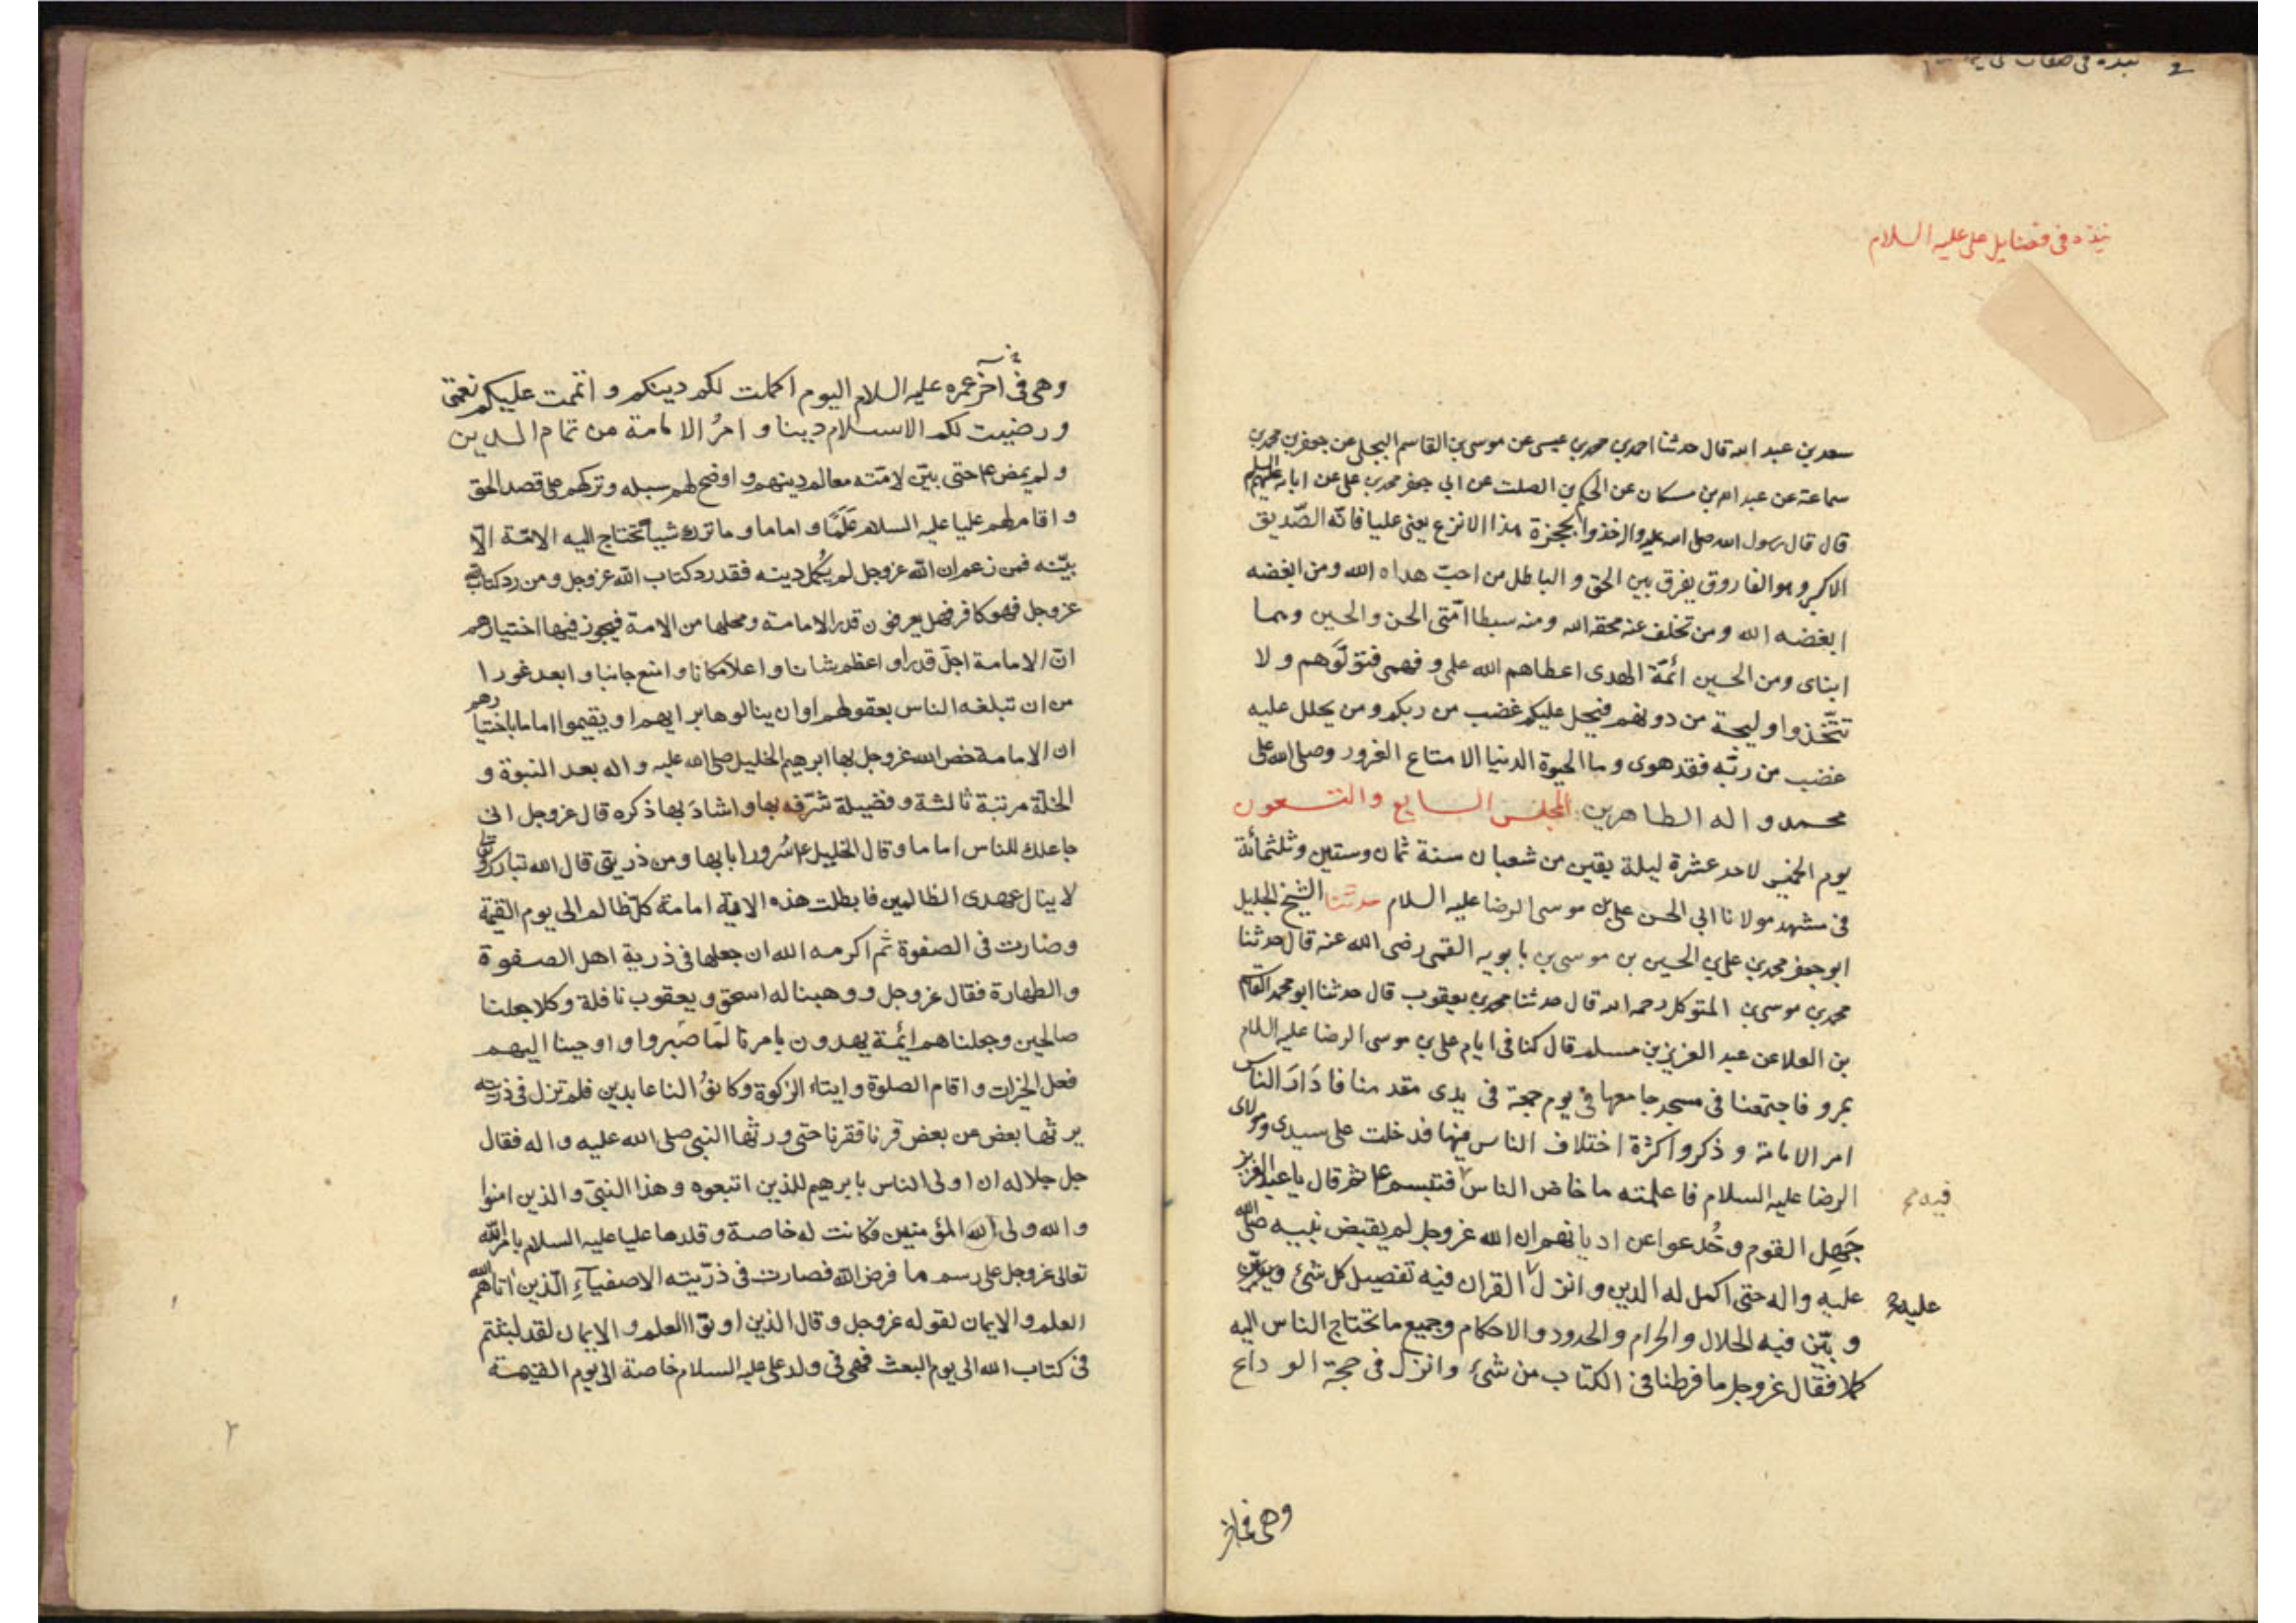 نبذه فى
2
نبذه فى فضايل على عليه السلام
سعد بن عبد الله قال حدثنا احمد بن محمد بن عيسى عن موسى بن القاسم البجلى عن جعفر بن محمد بن
سماعة عن عبد الله بن مسكان عن الحكم بن الصلت عن ابى جعفر محمد بن على عن ابائه عليهم السلم
قال قال رسول الله صلى الله عليه واله خذوا بحجزة هذا الانزع يعنى عليا فانّه الصّديق
الاكبر وهو الفاروق يفرق بين الحق و الباطل من احبّ هداه الله ومن ابغضه
ابغضه الله ومن تخلف عنه محقه الله ومنه سبطا امّتى الحسن والحسين وهما
ابناى ومن الحسين ائمّة الهدى اعطاهم الله علمى و فهمى فتولّوهم و لا
تتّخذوا وليجة من دونهم فيحل عليكم غضب من ربكم ومن يحلل عليه
غضب من ربّه فقد هوى و ما الحيوة الدنيا الا متاع الغرور وصلى الله على
محمد و اله الطاهرين المجلس السابع والتسعون
يوم الخميس لاحد عشرة ليلة بقين من شعبان سنة ثمان وستين وثلثمائة
فى مشهد مولانا ابى الحسن على بن موسى الرضا عليه السلام حدثنا الشيخ الجليل
ابو جعفر محمد بن على بن الحسين بن موسى بن بابويه القمى رضى الله عنه قال حدثنا
محمد بن موسى بن المتوكل رحمه الله قال حدثنا محمد بن يعقوب قال حدثنا ابو محمد القاسم
بن العلا عن عبد العزيز بن مسلم قال كنا فى ايام على بن موسى الرضا عليه السلام
بمرو فاجتمعنا فى مسجد جامعها فى يوم جمعة فى بدى مقدمنا فادار الناس
امر الامامة و ذكروا كثرة اختلاف الناس فيها فدخلت على سيدى ومولاى
الرضا عليه السلام فاعلمته ما خاض الناس فتبسم ع ثم قال يا عبد العزيز
فيه
جَهِل القوم وخُدعوا عن اديانهم ان الله عز وجل لم يقبض نبيه صلى الله
عليه واله حتى اكمل له الدين و انزل القران فيه تفصيل كل شئ
عليه
و بيّن فيه الحلال والحرام والحدود والاحكام وجميع ما تحتاج الناس اليه
كملا فقال عز وجل ما فرطنا فى الكتاب من شئ وانزل فى حجة الوداع
وهى فى اخر
وهى فى آخر عمره عليه السلام اليوم اكملت لكم دينكم و اتممت عليكم نعمتى
ورضيت لكم الاسلام دينا و امرُ الامامة من تمام الدين
ولم يمض ع حتى بيّن لامّته معالم دينهم و اوضح لهم سبله وتركهم على قصد الحق
و اقام لهم عليا عليه السلام عَلَمًا و اماما و ما ترك شيأ تحتاج اليه الامّة الّا
بيّنه فمن زعم ان الله عز وجل لم يُكمل دينه فقد رد كتاب الله عز وجل و من رد كتاب الله
عز وجل فهو كافر فهل يعرفون قدر الامامة ومحلها من الامة فيجوز فيها اختيارهم
انّ الامامة اجلّ قدرا و اعظم شانا و اعلا مكانا و امنع جانبا و ابعد غورا
من ان تبلغه الناس بعقولهم او ان ينالوها برايهم او يقيموا اماما باختيارهم
ان الامامة خص الله عز وجل بها ابرهيم الخليل صلى الله عليه واله بعد النبوة و
الخلّة مرتبة ثالثة و فضيلة شرّفه بها و اشادَ بها ذكره قال عز وجل انى
جاعلك للناس اماما و قال الخليل ع سُرورا بها ومن ذريتى قال الله تبارك وتعالى
لا ينال عهدى الظالمين فابطلت هذه الاية امامة كلّ ظالم الى يوم القيمة
وصارت فى الصفوة ثم اكرمه الله ان جعلها فى ذرية اهل الصفوة
والطهارة فقال عز وجل و وهبنا له اسحق و يعقوب نافلة وكلا جعلنا
صالحين وجعلناهم ائمة يهدون بامرنا لمّا صَبروا و اوحينا اليهم
فعل الخيرات و اقام الصلوة و ايتاء الزكوة وكانوُا لنا عابدين فلم تزل فى ذريته
يرثها بعض من بعض قرنا فقرنا حتى ورثها النبى صلى الله عليه واله فقال
جل جلاله ان اولى الناس بابرهيم للذين اتبعوه وهذا النبىّ والذين امنوا
و الله ولى المؤمنين فكانت له خاصة و قلدها عليا عليه السلام بامر الله
تعالى عز وجل على رسم ما فرض الله فصارت فى ذرّيته الاصفياءِ الّذين اتاهم الله
العلم و الايمان لقوله عز وجل و قال الذين اوتوا العلم و الايمان لقد لبثتم
فى كتاب الله الى يوم البعث فهى فى ولد على عليه السلام خاصة الى يوم القيمة
٢